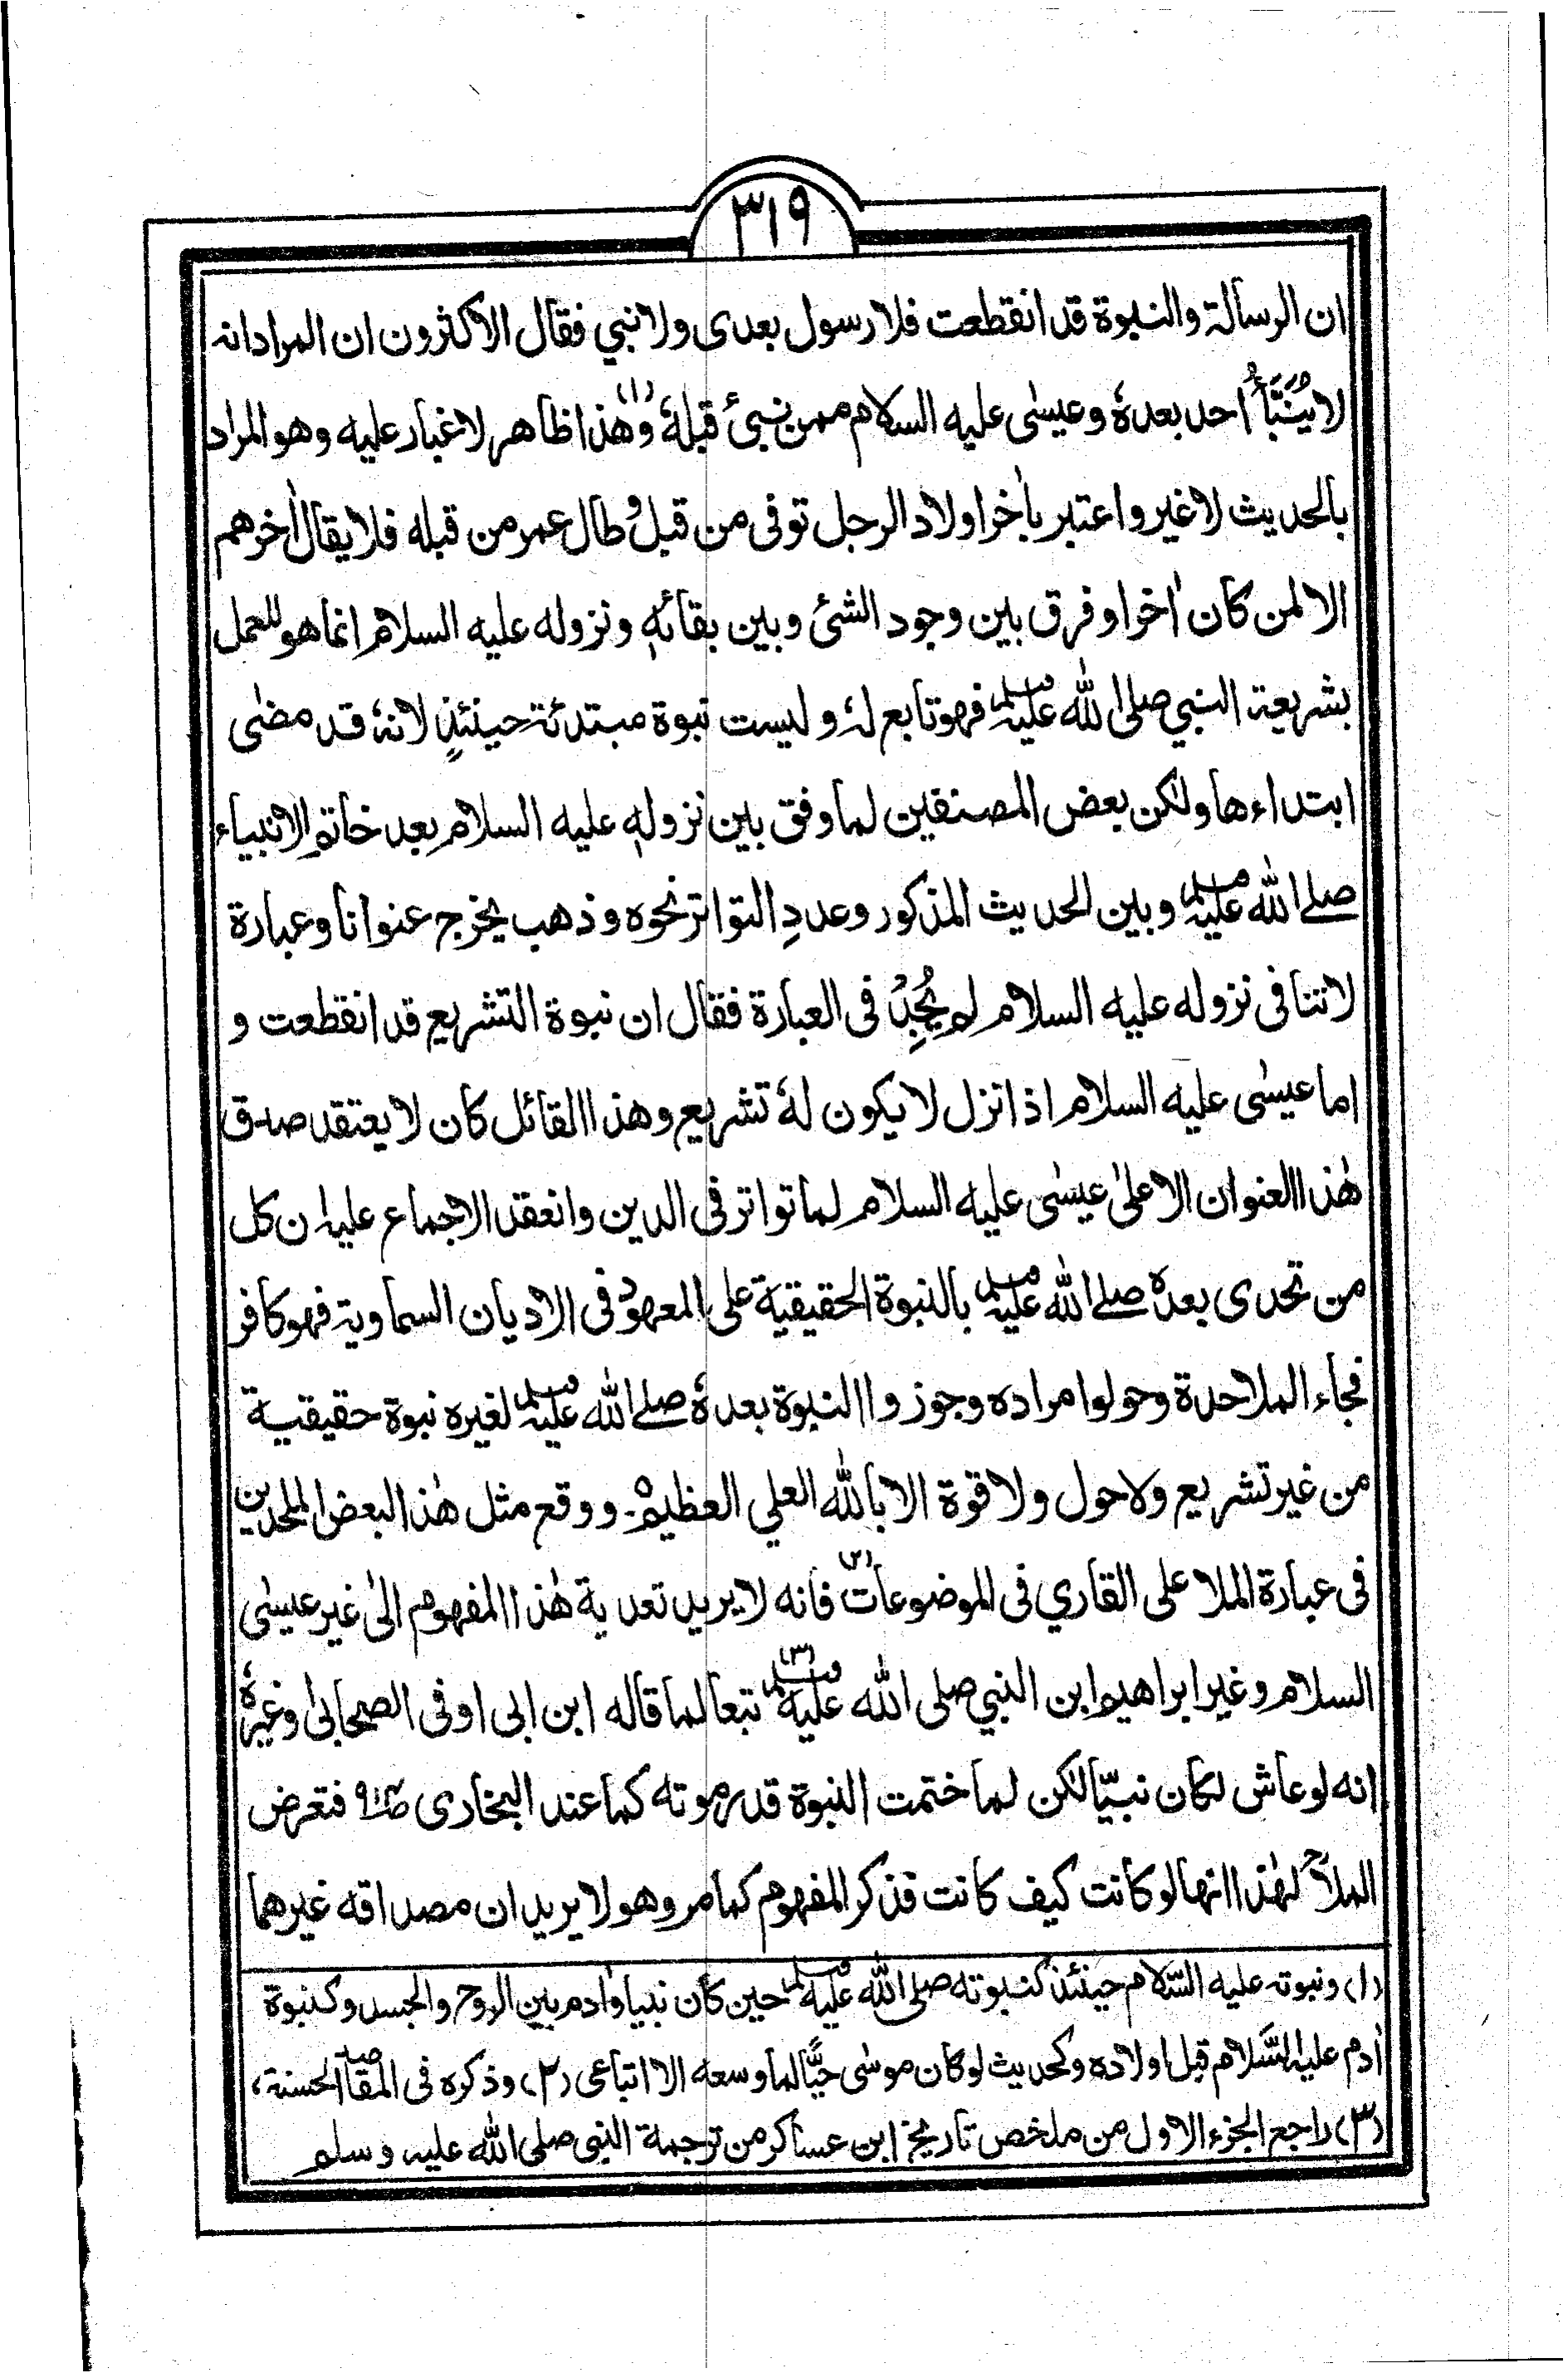 ٣١٩
ان الرسالة والنبوة قد انقطعت فلا رسول بعدى ولا نبي فقال الاكثرون ان المراد انه
لا يُنَبَّأُ احد بعدهٗ وعيسٰى عليه السلام ممن نبئ قبلهٗ (١) وهٰذا ظاهر لا غبار عليه وهو المراد
بالحديث لا غير واعتبر باٰخر اولاد الرجل توفى من قبل وطال عمر من قبله فلا يقال اٰخرهم
الا لمن كان اٰخرا وفرق بين وجود الشئ وبين بقائهٖ ونزوله عليه السلام انما هو للعمل
بشريعة النبي صلى الله عليه وسلم فهو تابع لهٗ وليست نبوة مبتدئة حينئذٍ لانهٗ قد مضٰى
ابتداءها ولٰكن بعض المصنفين لما وفق بين نزولهٖ عليه السلام بعد خاتم الانبياء
صلے الله عليه وسلم وبين الحديث المذكور وعددِ التواتر نحوه وذهب يخرج عنوانا وعبارة
لا تنافى نزوله عليه السلام لم يُجِدْ فى العبارة فقال ان نبوة التشريع قد انقطعت و
اما عيسٰى عليه السلام اذا نزل لا يكون لهٗ تشريع وهذا القائل كان لا يعتقد صدق
هٰذا العنوان الا علىٰ عيسٰى عليه السلام لما تواتر فى الدين وانعقد الاجماع عليه ان كل
من تحدى بعده صلے الله عليه وسلم بالنبوة الحقيقية على المعهود فى الاديان السماوية فهو كافر
فجاء الملاحدة وحولوا مراده وجوزوا النبوة بعدهٗ صلے الله عليه وسلم لغيره نبوة حقيقية
من غير تشريع ولا حول ولا قوة الا بالله العلي العظيم۔ ووقع مثل هٰذا لبعض الملحدين
فى عبارة الملا على القاري فى الموضوعات (٢) فانه لا يريد تعدية هٰذا المفهوم الىٰ غير عيسٰى
السلام وغير ابراهيم ابن النبي صلى الله عليه وسلم (٣) تبعا لما قاله ابن ابى اوفى الصحابى وغيرهٗ
انه لو عاش لكان نبيّا لٰكن لما ختمت النبوة قدر موته كما عند البخارى فتعرض
الملاؒ لهٰذا انها لو كانت كيف كانت فذكر المفهوم كما مر وهو لا يريد ان مصداقه غيرهما
(١) ونبوته عليه السّلام حينئذ كنبوته صلى الله عليه وسلم حين كان نبيا واٰدم بين الروح والجسد وكنبوة
اٰدم عليه السَّلام قبل اولاده وكحديث لو كان موسٰى حيًّا لما وسعه الا اتباعى (٢) وذكره فى المقاصد الحسنة،
(٣) راجع الجزء الاول من ملخص تاريخ ابن عساكر من ترجمة النبى صلى الله عليه وسلم